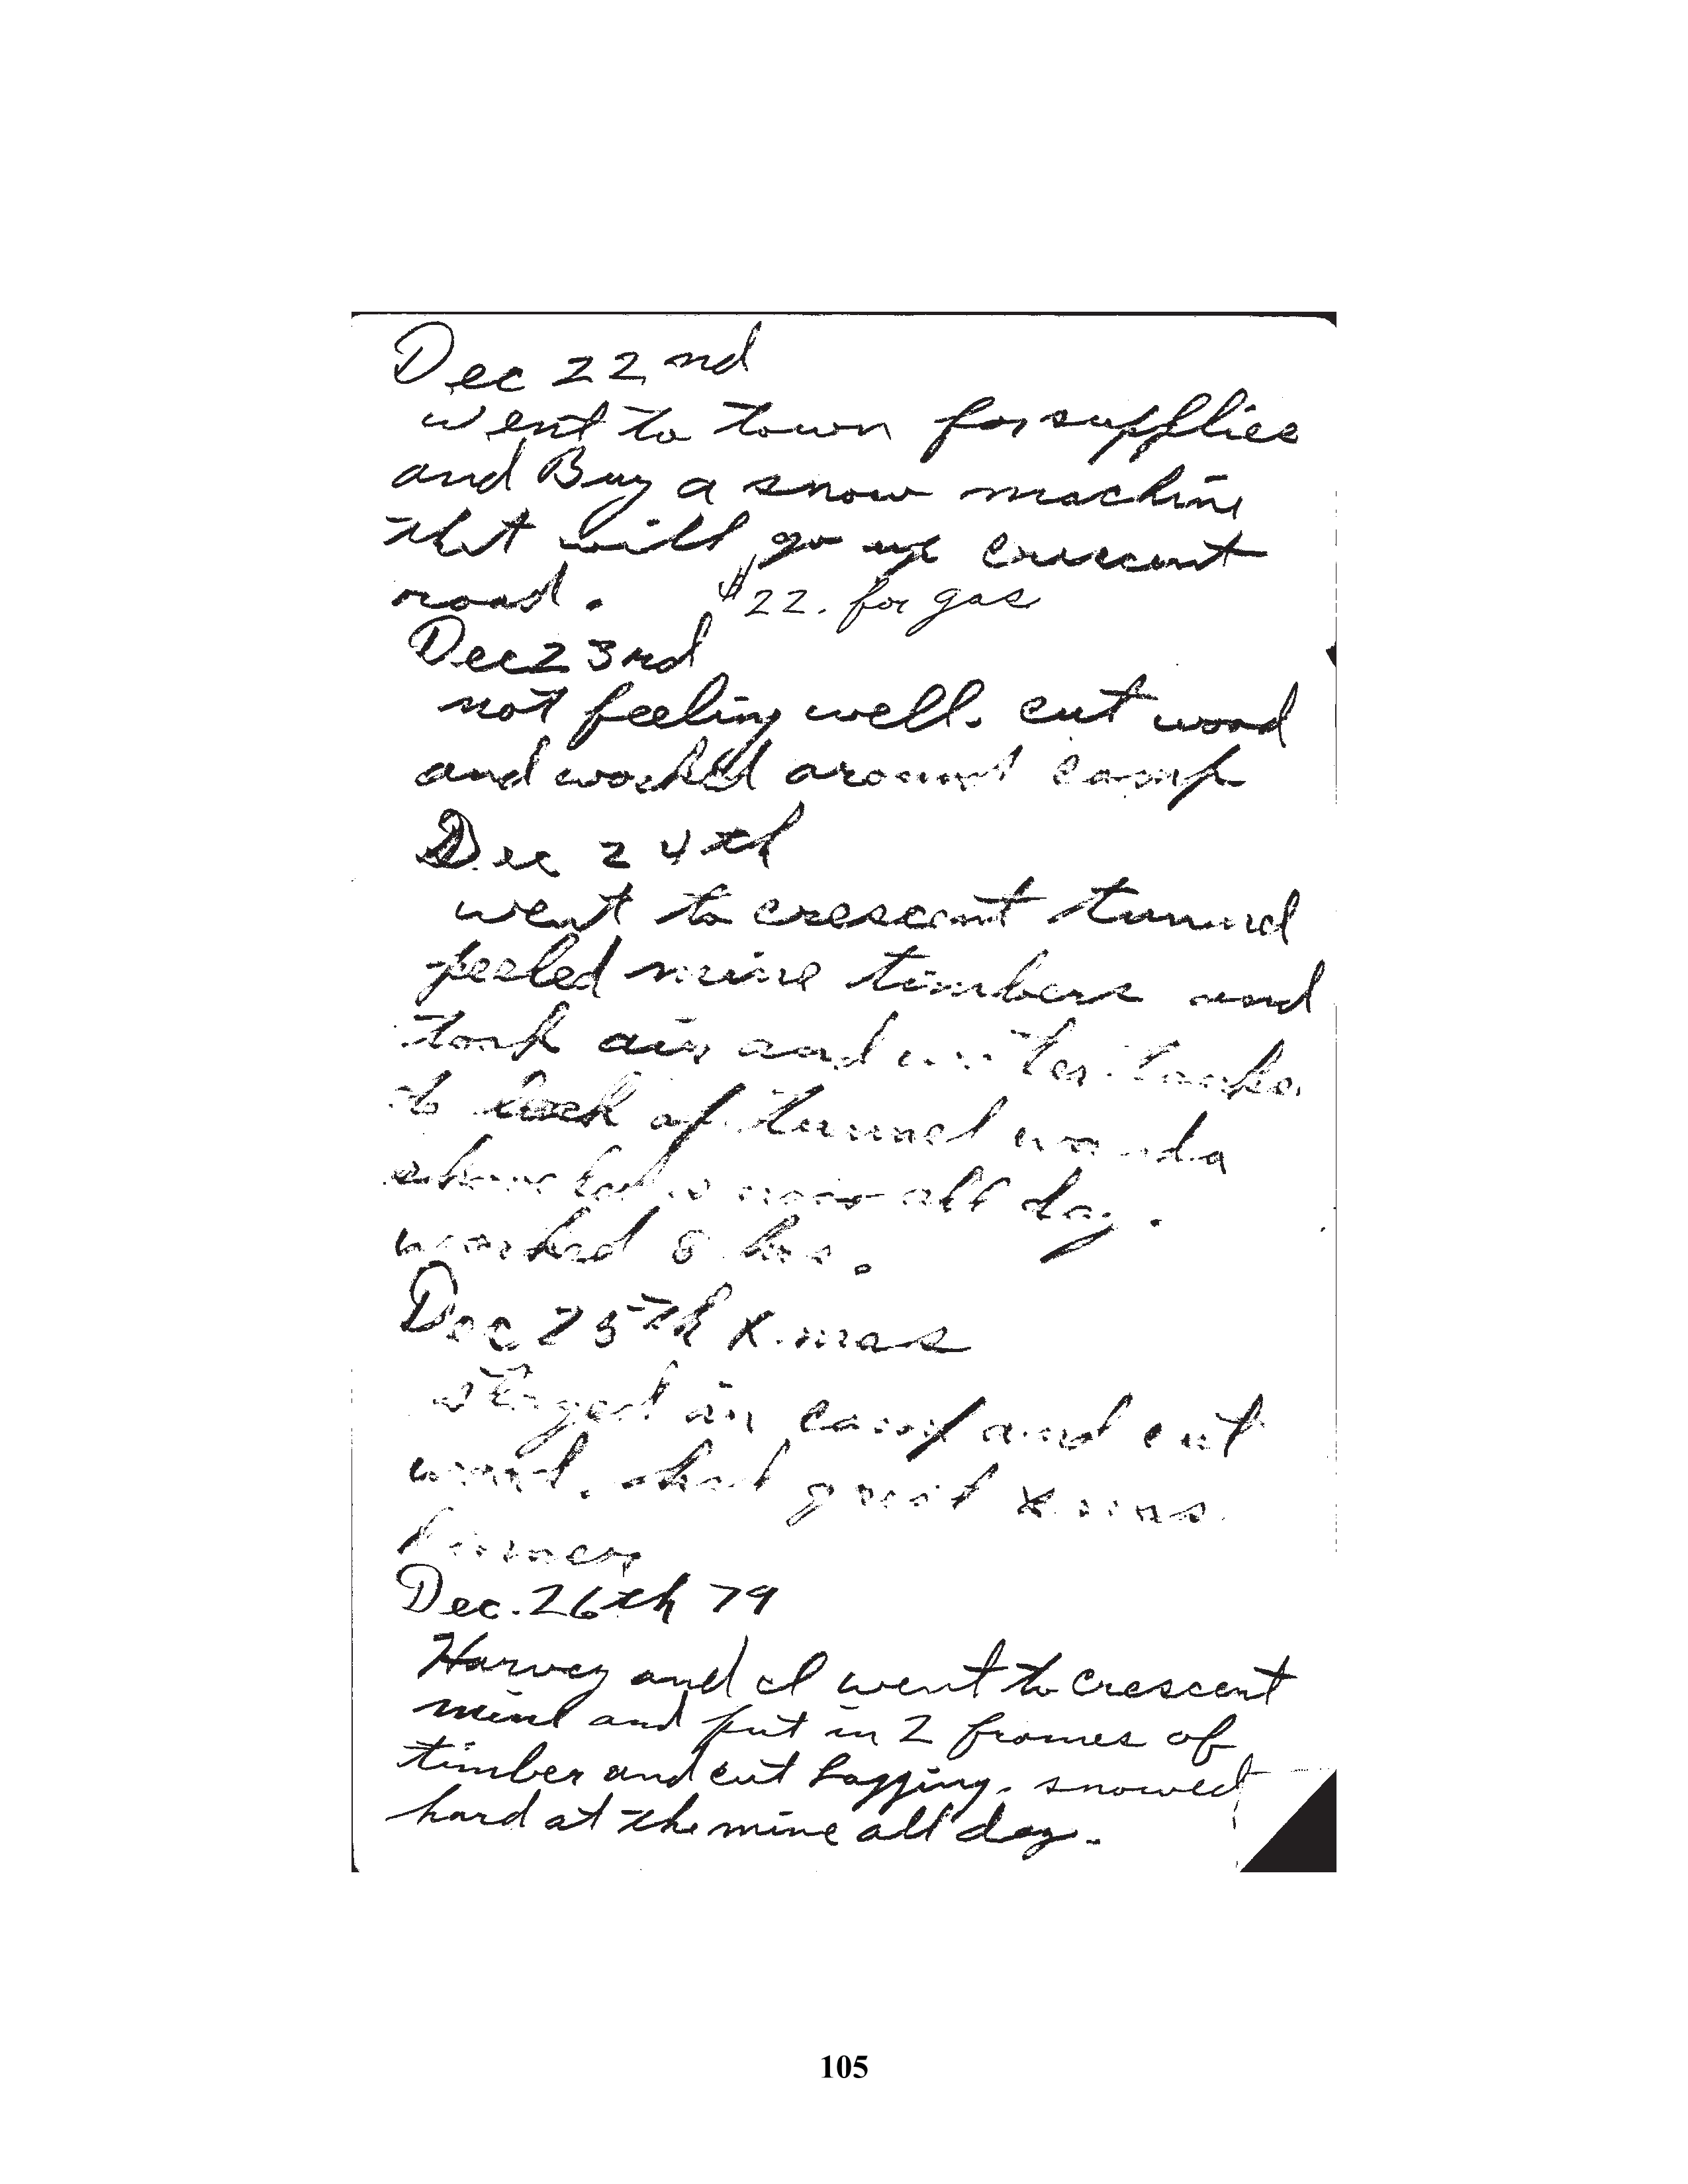 Dec 22nd
went to town for supplies
and Buy a snow machine
that will go up crescent
road. $22. for gas
Dec 23rd
not feeling well. cut wood
and work'd around camp
Dec 24th
went to crescent tunnel
peeled mine timbers and
took air and water tanks
to back of tunnel
all day.
worked 8 hrs.
Dec 25th X.mas
stayed in camp and cut
wood. had great X.mas
Dinner
Dec. 26th 79
Harvey and I went to Crescent
mine and put in 2 frames of
timber and cut lagging. snowed
hard at the mine all day.
105